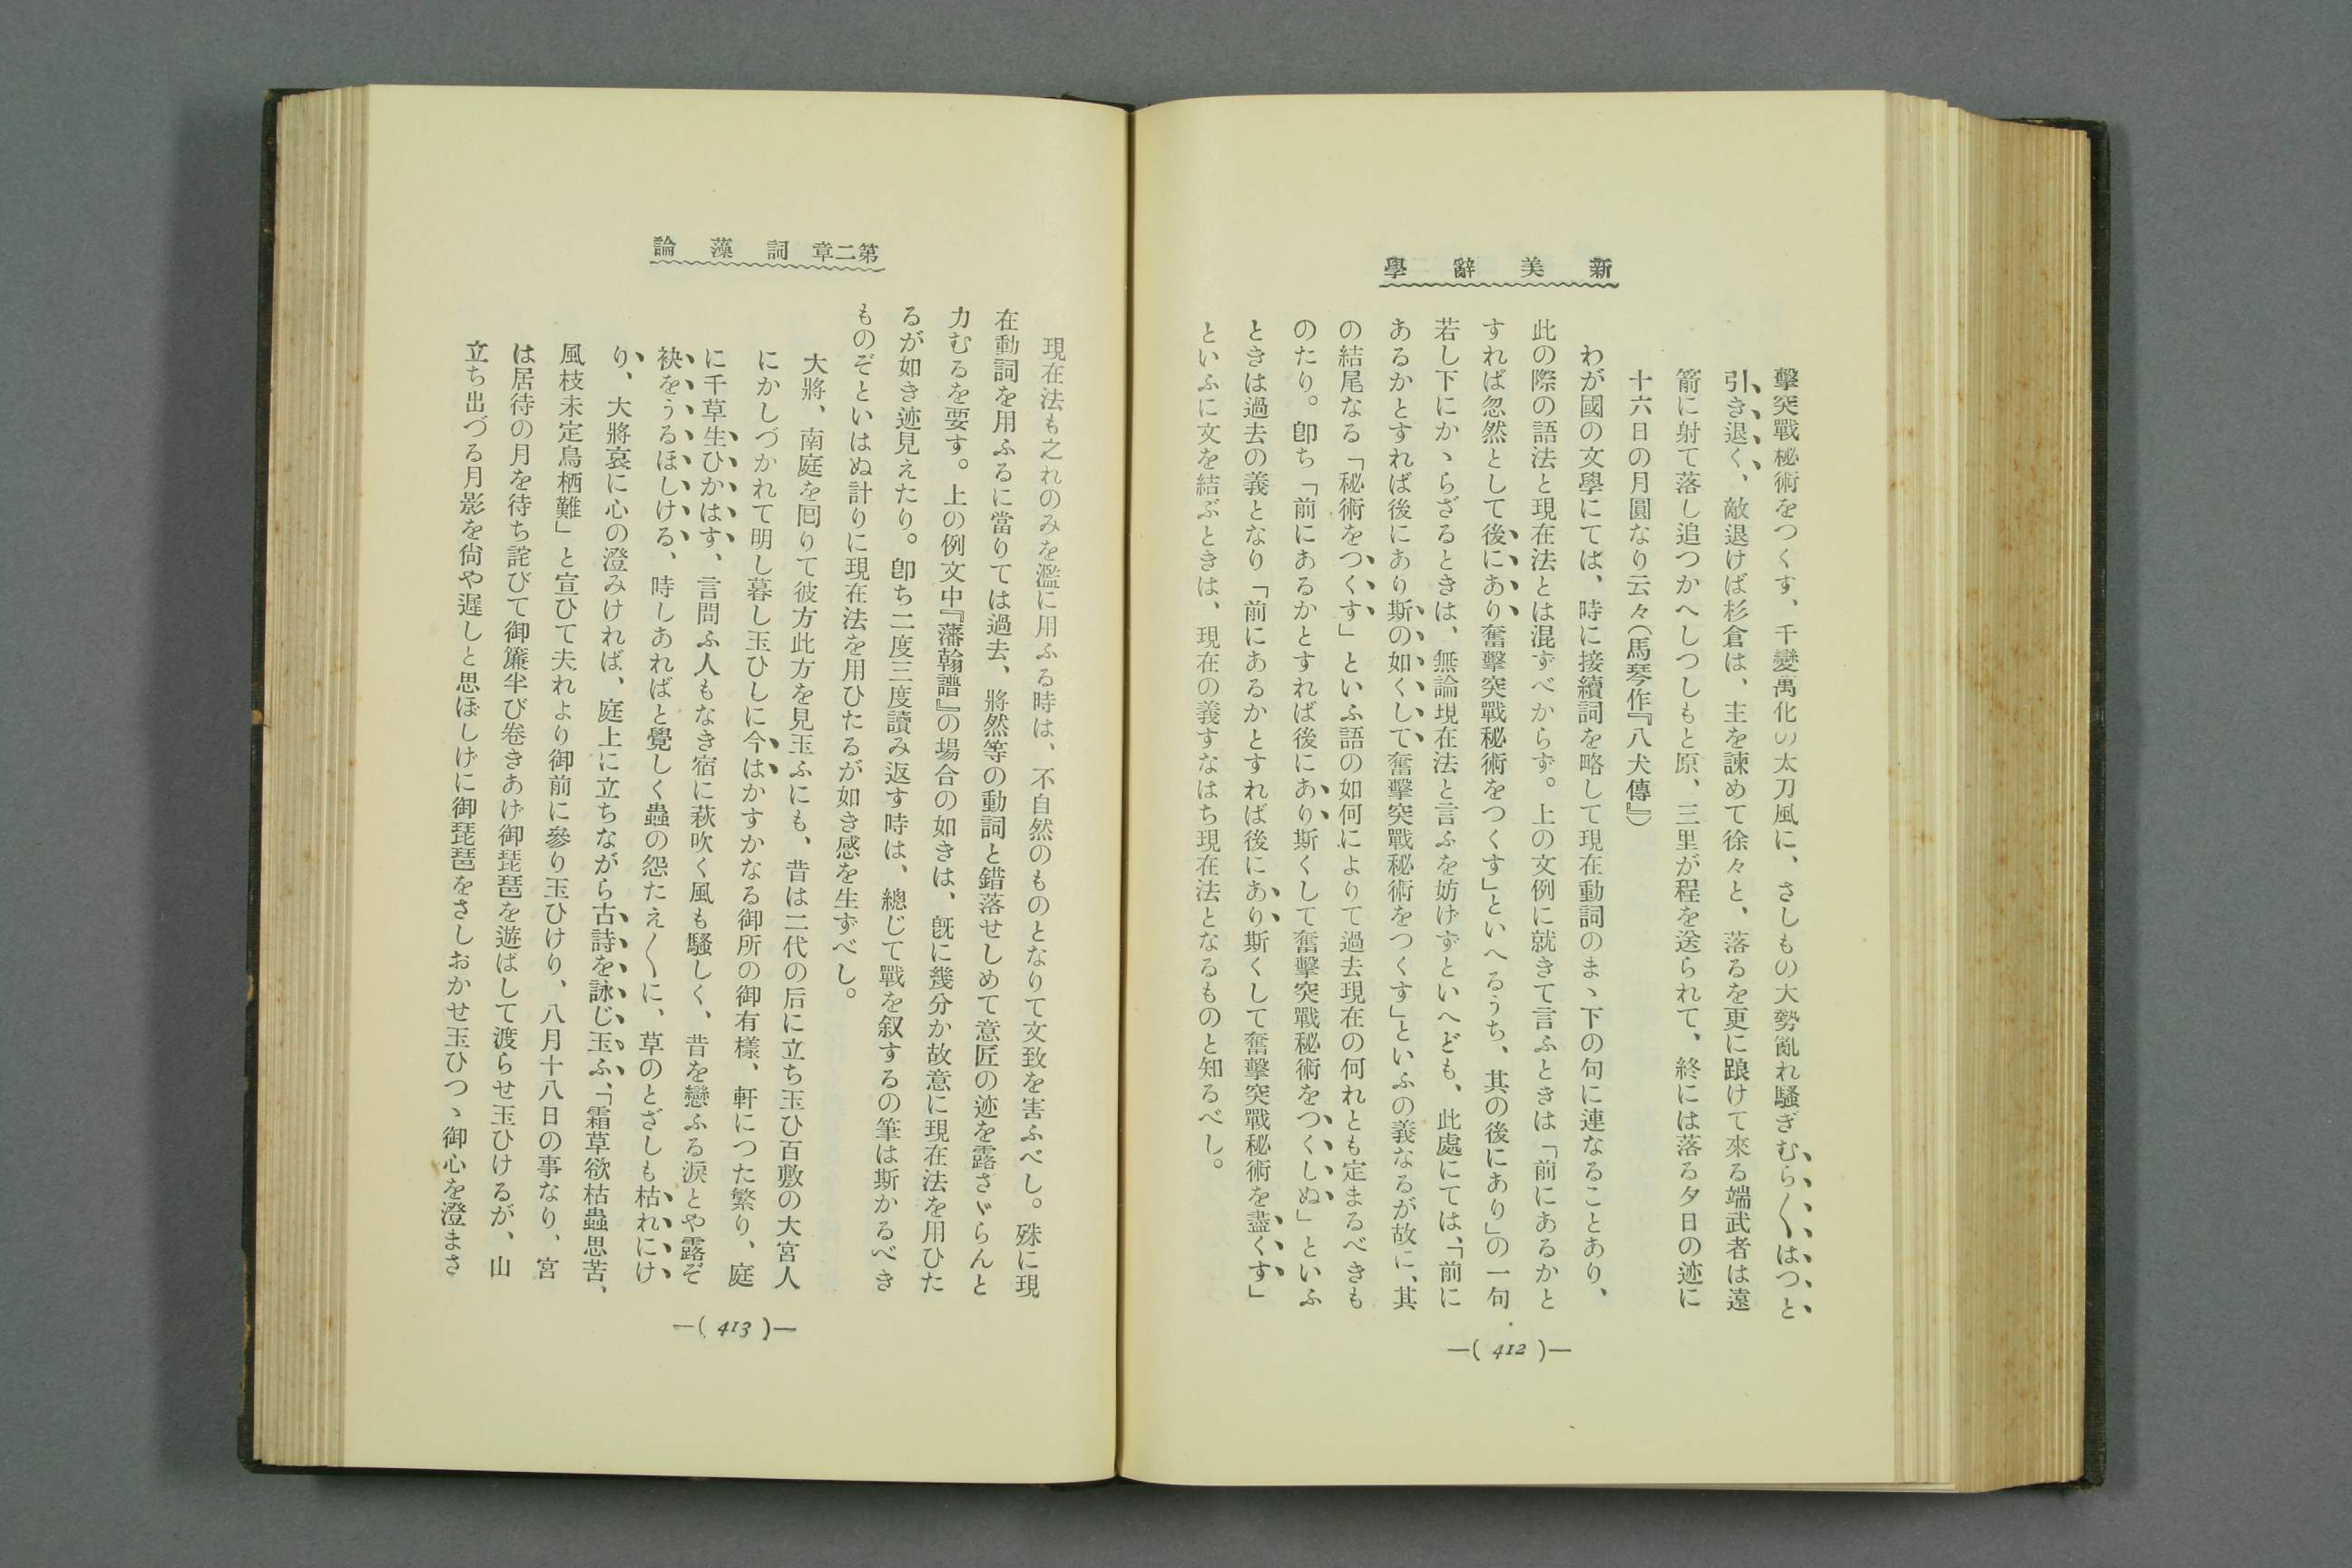 新美辭學
擊突戰秘術をつくす、千變萬化の太刀風に、さしもの大勢亂れ騷ぎむら〱はつと
引き退く、敵退けば杉倉は、主を諫めて徐々と、落るを更に踉けて來る端武者は遠
箭に射て落し追つかへしつしもと原、三里が程を送られて、終には落る夕日の迹に
十六日の月圓なり云々(馬琴作『八犬傳』)
わが國の文學にては、時に接續詞を略して現在動詞のまヽ下の句に連なることあり、
此の際の語法と現在法とは混ずべからず。上の文例に就きて言ふときは「前にあるかと
すれば忽然として後にあり奮擊突戰秘術をつくす」といへるうち、其の後にあり」の一句
若し下にかヽらざるときは、無論現在法と言ふを妨げずといへども、此處にては、「前に
あるかとすれば後にあり斯の如くして奮擊突戰秘術をつくす」といふの義なるが故に、其
の結尾なる「秘術をつくす」といふ語の如何によりて過去現在の何れとも定まるべきも
のたり。卽ち「前にあるかとすれば後にあり斯くして奮擊突戰秘術をつくしぬ」といふ
ときは過去の義となり「前にあるかとすれば後にあり斯くして奮擊突戰秘術を盡くす」
といふに文を結ぶときは、現在の義すなはち現在法となるものと知るべし。
—( 412 )—
第二章 詞藻論
現在法も之れのみを濫に用ふる時は、不自然のものとなりて文致を害ふべし。殊に現
在動詞を用ふるに當りては過去、將然等の動詞と錯落せしめて意匠の迹を露さヾらんと
力むるを要す。上の例文中『藩翰譜』の場合の如きは、旣に幾分か故意に現在法を用ひた
るが如き迹見えたり。卽ち二度三度讀み返す時は、總じて戰を叙するの筆は斯かるべき
ものぞといはぬ計りに現在法を用ひたるが如き感を生ずべし。
大將、南庭を囘りて彼方此方を見玉ふにも、昔は二代の后に立ち玉ひ百敷の大宮人
にかしづかれて明し暮し玉ひしに今はかすかなる御所の御有樣、軒につた繁り、庭
に千草生ひかはす、言問ふ人もなき宿に萩吹く風も騷しく、昔を戀ふる淚とや露ぞ
袂をうるほしける、時しあればと覺しく蟲の怨たえ〱に、草のとざしも枯れにけ
り、大將哀に心の澄みければ、庭上に立ちながら古詩を詠じ玉ふ、「霜草欲枯蟲思苦、
風枝未定鳥栖難」と宣ひて夫れより御前に參り玉ひけり、八月十八日の事なり、宮
は居待の月を待ち詫びて御簾半び卷きあげ御琵琶を遊ばして渡らせ玉ひけるが、山
立ち出づる月影を尙や遲しと思ぼしけに御琵琶をさしおかせ玉ひつヽ御心を澄まさ
—( 413 )—